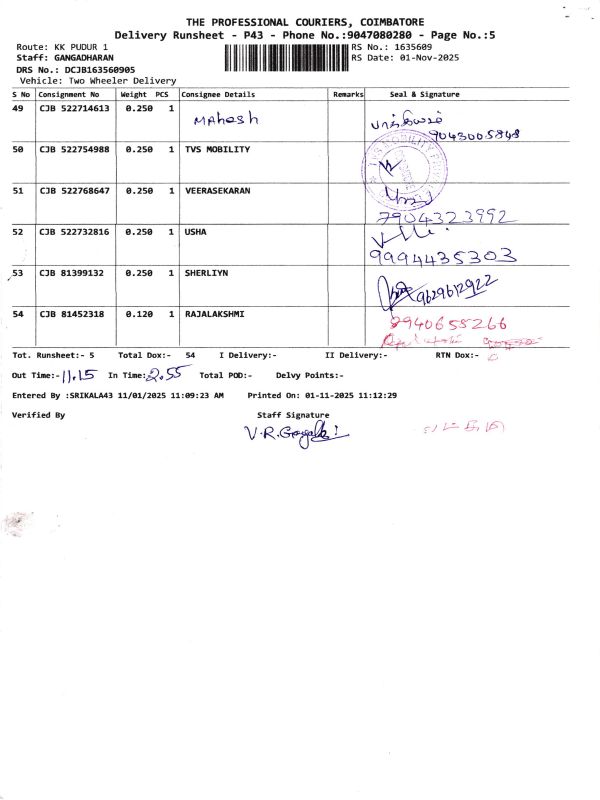 THE PROFESSIONAL COURIERS, COIMBATORE
Delivery Runsheet - P43 - Phone No.:9047080280 - Page No.:5
Route: KK PUDUR 1 RS No.: 1635609
Staff: GANGADHARAN RS Date: 01-Nov-2025
DRS No.: DCJB163560905
Vehicle: Two Wheeler Delivery
S No Consignment No Weight PCS Consignee Details Remarks Seal & Signature
49 CJB 522714613 0.250 1 Mahesh
9043005848
50 CJB 522754988 0.250 1 TVS MOBILITY
51 CJB 522768647 0.250 1 VEERASEKARAN
7904323992
52 CJB 522732816 0.250 1 USHA
9994435303
53 CJB 81399132 0.250 1 SHERLIYN
9629612922
54 CJB 81452318 0.120 1 RAJALAKSHMI 7940658266
Tot. Runsheet:- 5 Total Dox:- 54 I Delivery:- II Delivery:- RTN Dox:-
Out Time:- 11.15 In Time: 2.55 Total POD:- Delvy Points:-
Entered By :SRIKALA43 11/01/2025 11:09:23 AM Printed On: 01-11-2025 11:12:29
Verified By Staff Signature